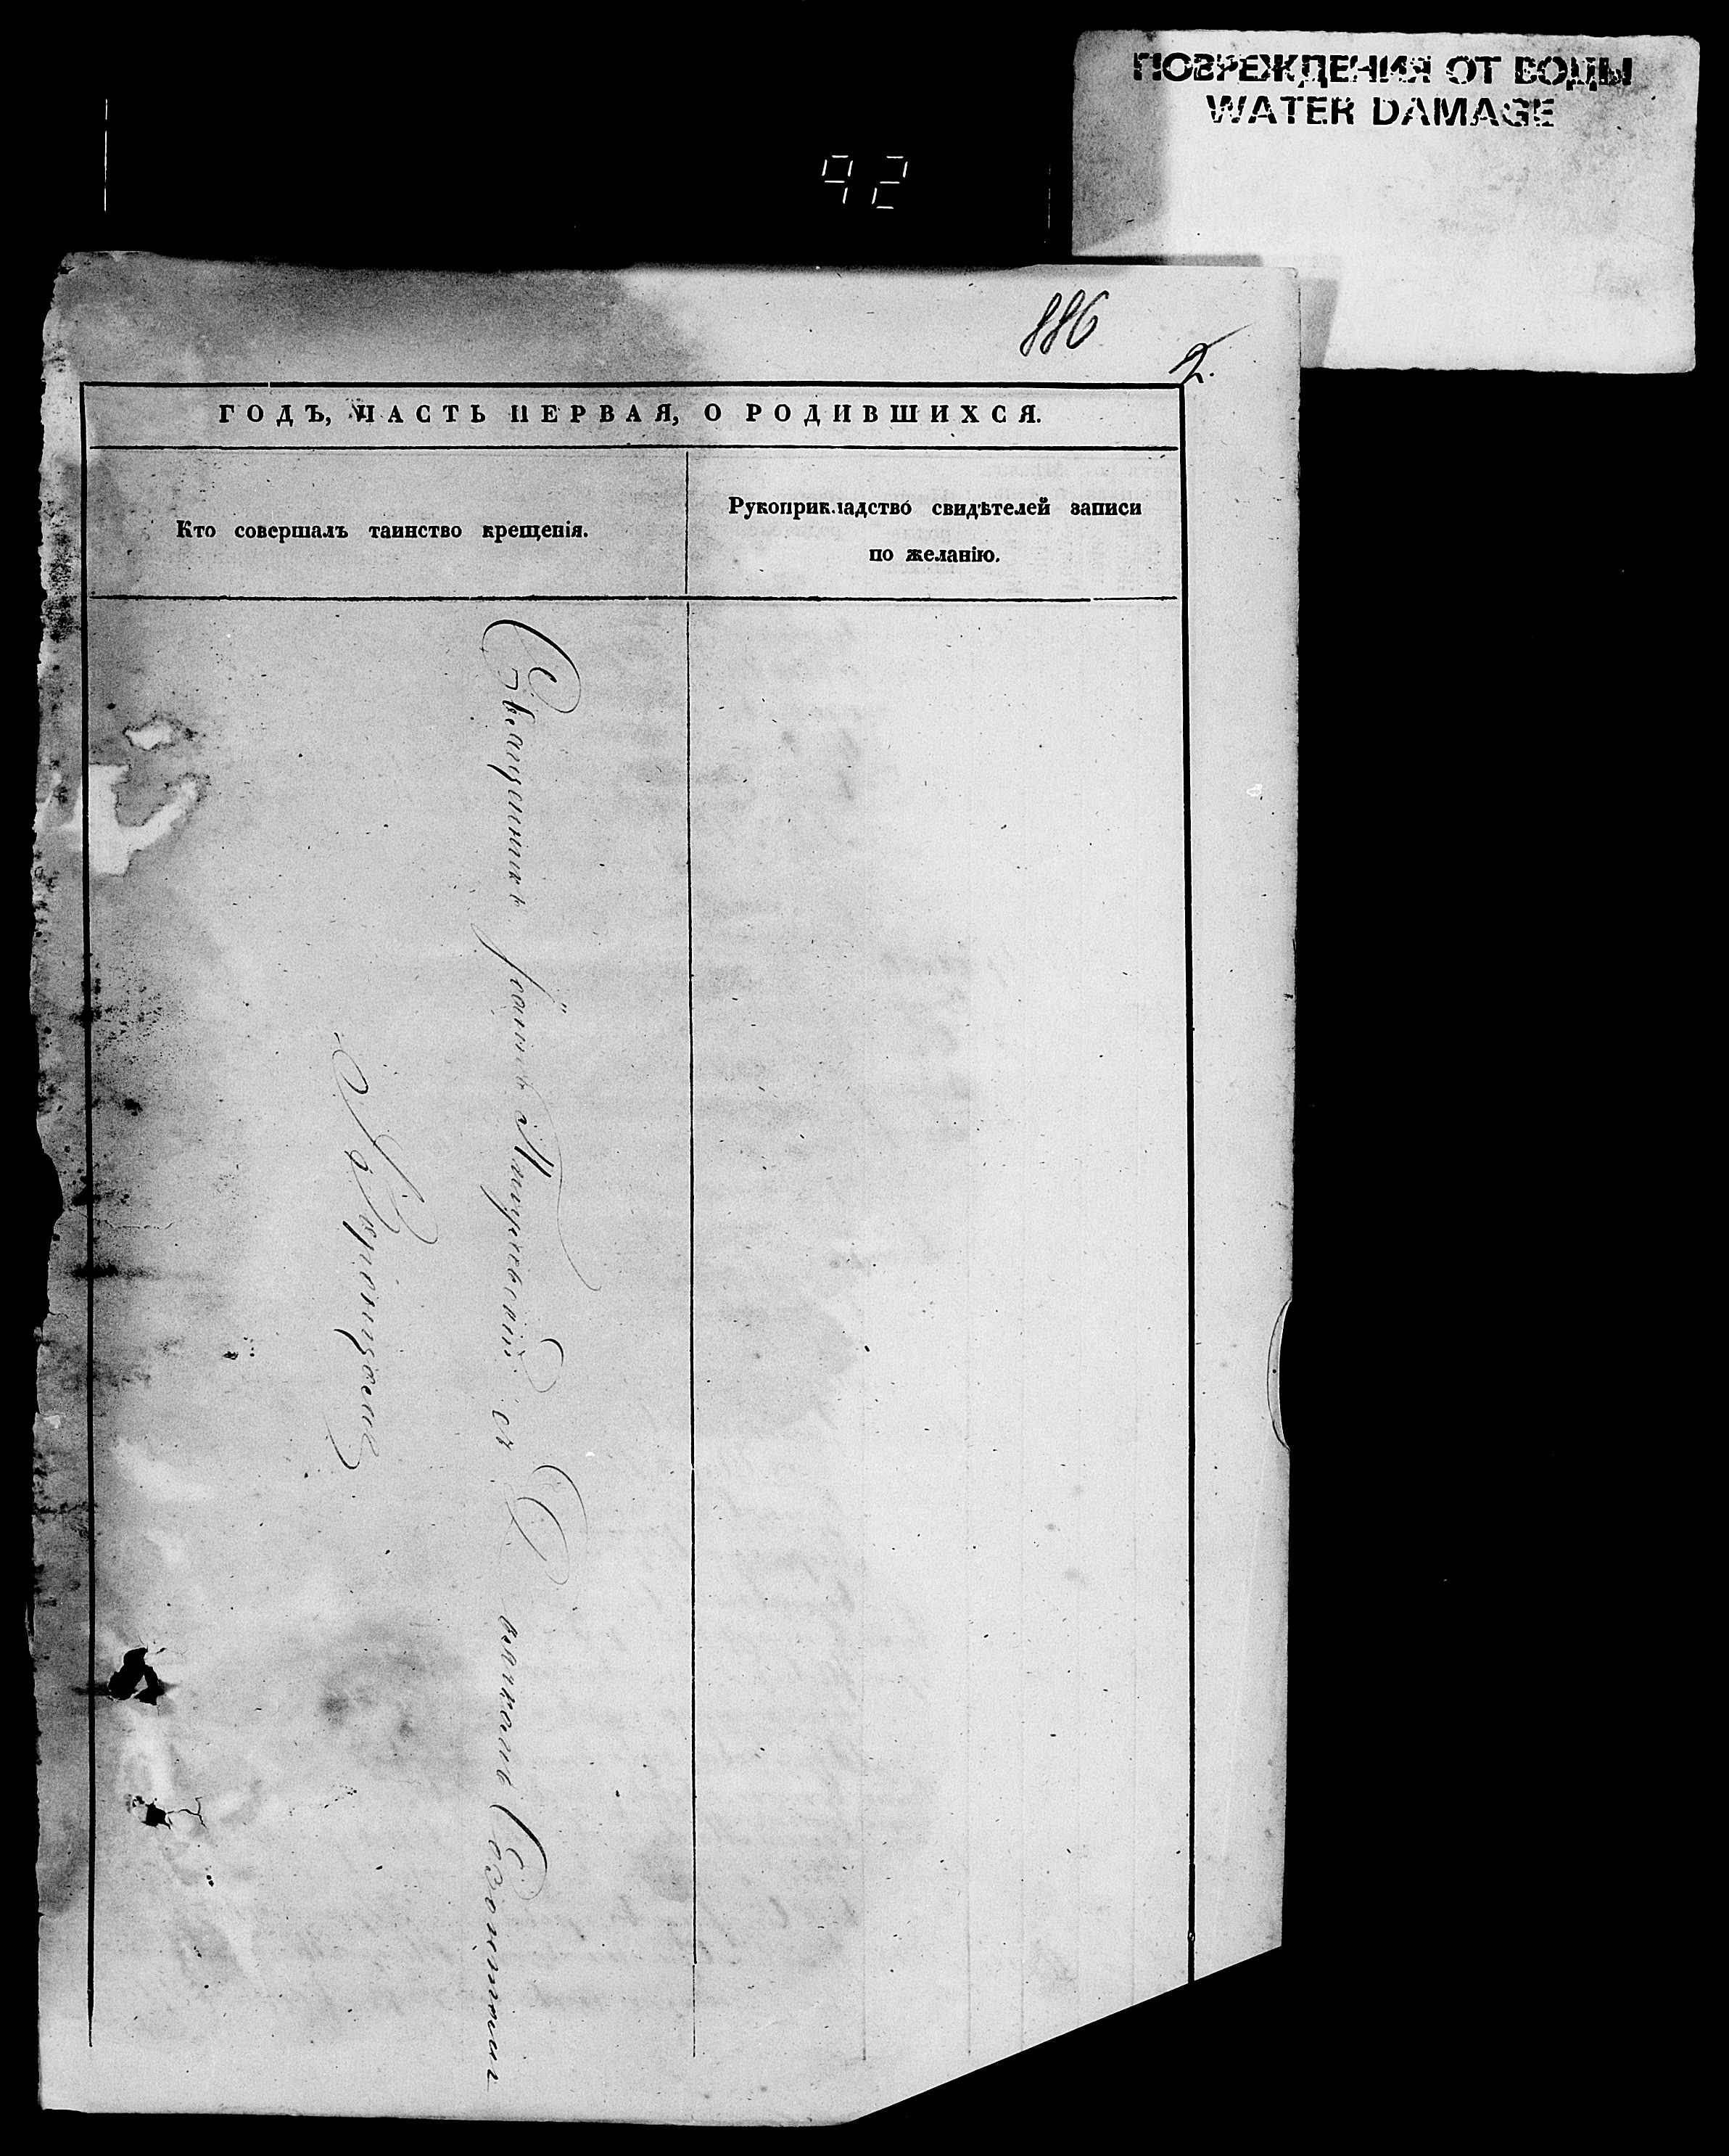 ПОВРЕЖДЕНИЯ ОТ ВОДЫ
WATER DAMAGE
92
886
2.
ГОДЪ, ЧАСТЬ ПЕРВАЯ, О РОДИВШИХСЯ.
Кто совершалъ таинство крещенія.
Рукоприкладство свидѣтелей записи
по желанію.
Священникъ Іоаннъ съ